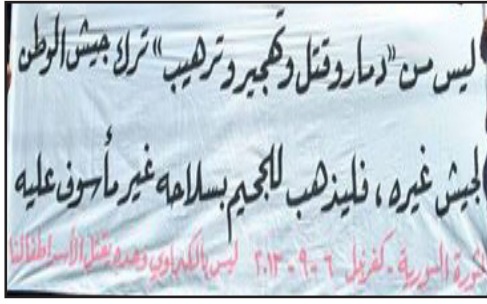 ليس من «دمار وقتل وتهجير وترهيب» ترك جيش الوطن
لجيش غيره، فليذهب للجحيم بسلاحه غير مأسوف عليه
الثورة السورية - كفرنبل ٦ - ٩ - ٢٠١٣ ليس بالكيماوي وحده يقتل الأسد أطفالنا